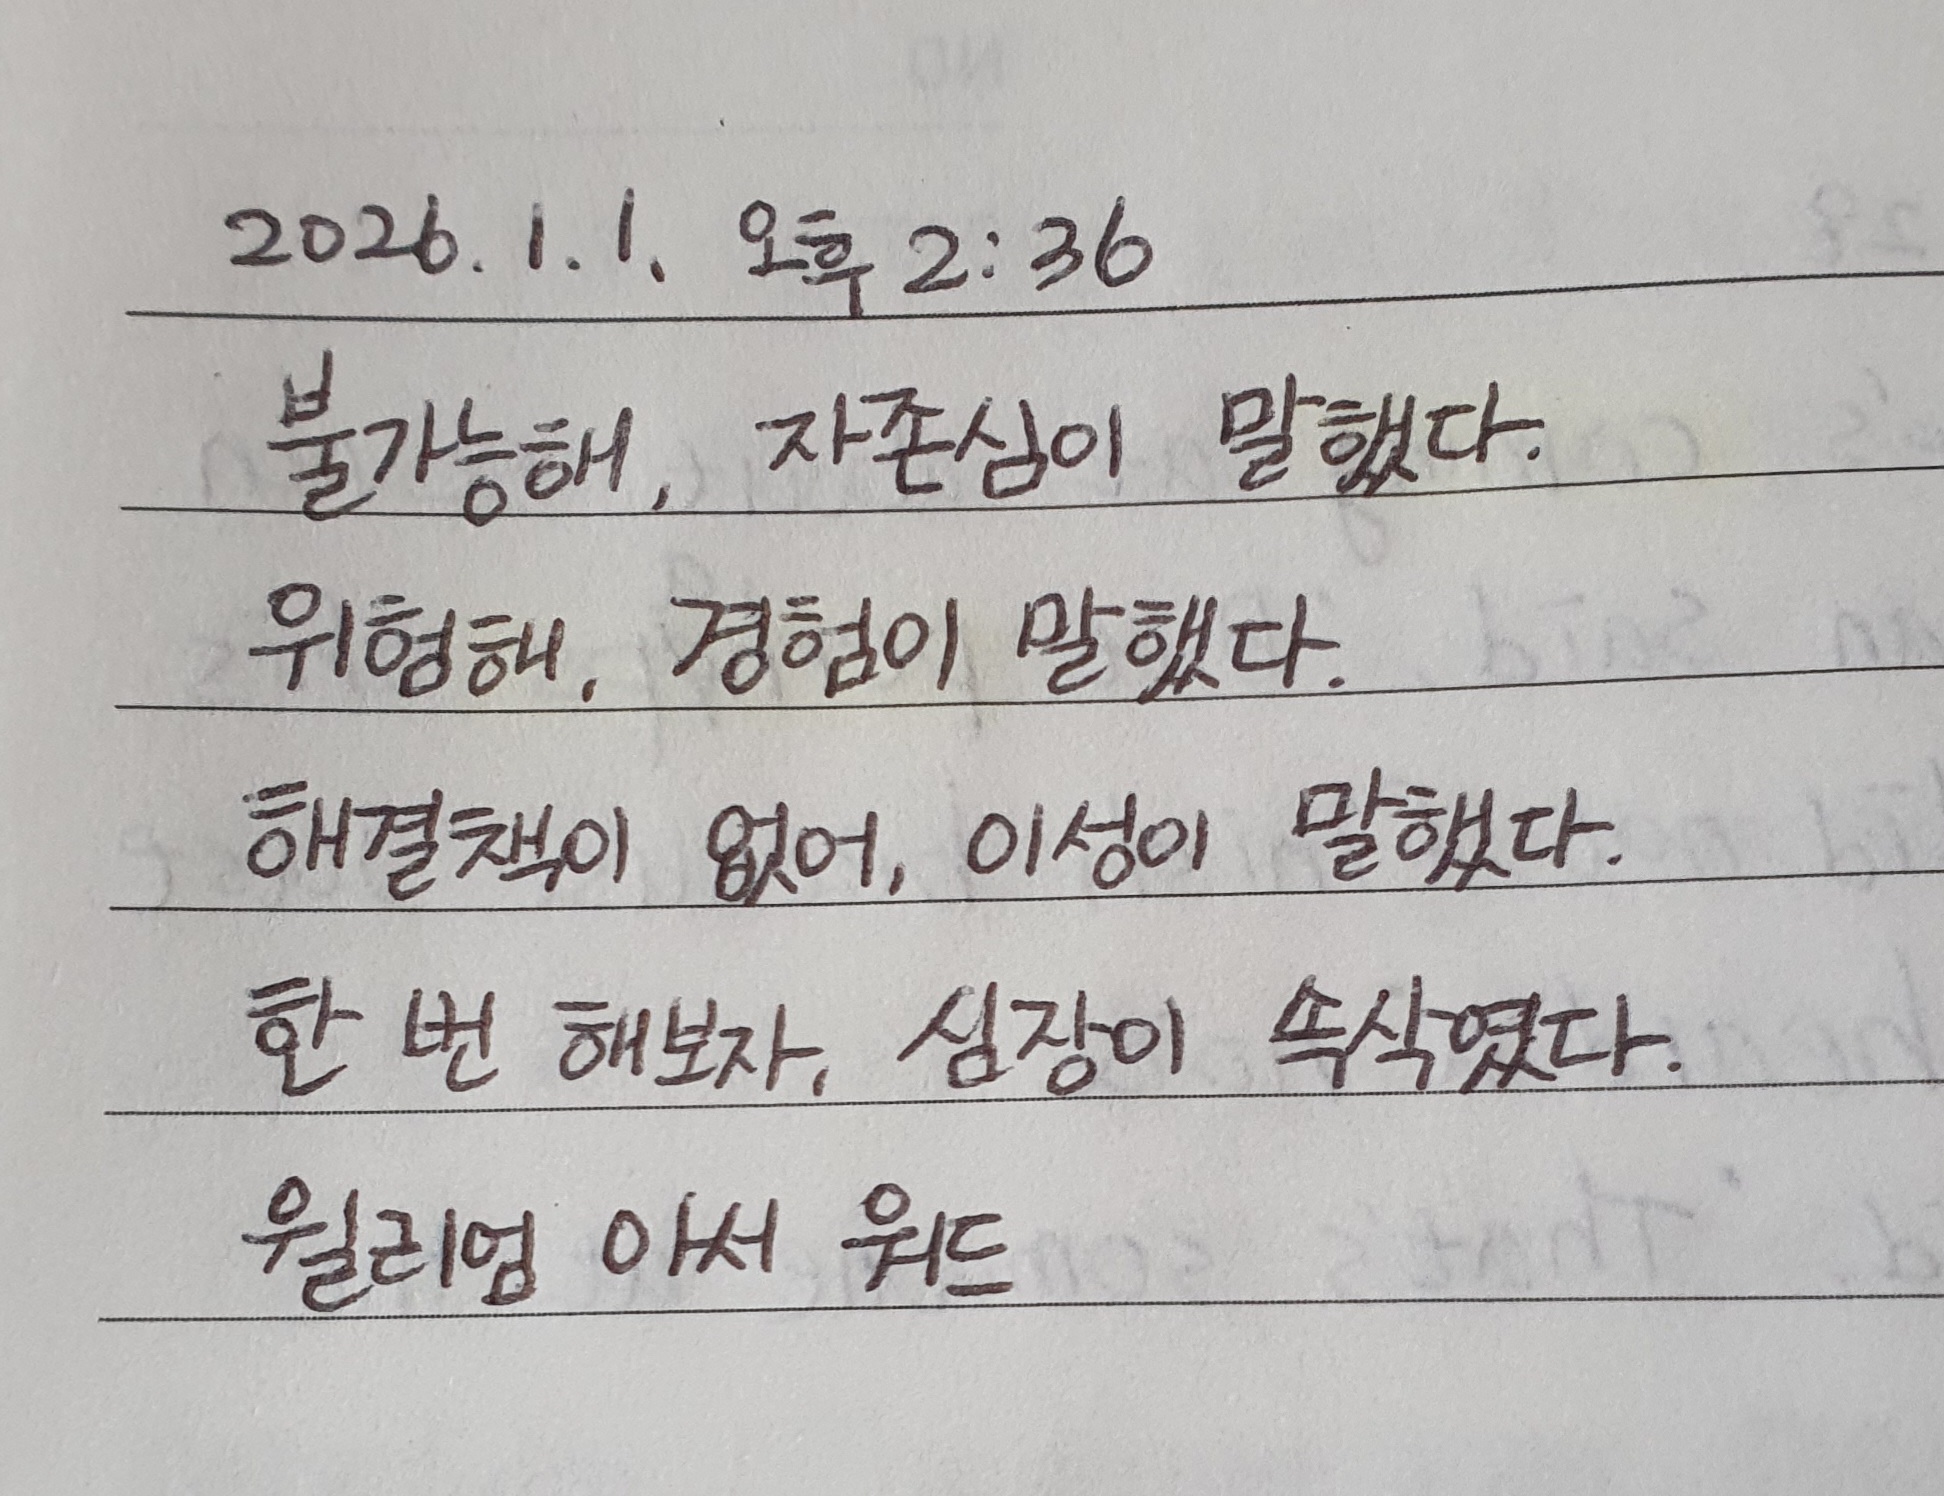 2026. 1. 1. 오후 2:36
불가능해, 자존심이 말했다.
위험해, 경험이 말했다.
해결책이 없어, 이성이 말했다.
한 번 해보자, 심장이 속삭였다.
윌리엄 아서 워드